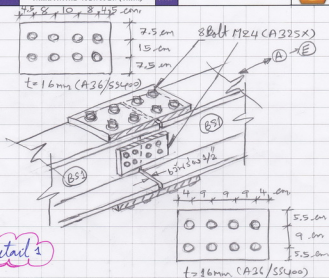 4.5 8 10 8 4.5 cm
7.5 cm
15 cm
7.5 cm
t=16mm (A36/SS400)
8 Bolt M24 (A325X)
A
E
BS1
BS1
4 9 9 9 4 cm
5.5 cm
9 cm
5.5 cm
Detail 1
t=16mm (A36/SS400)